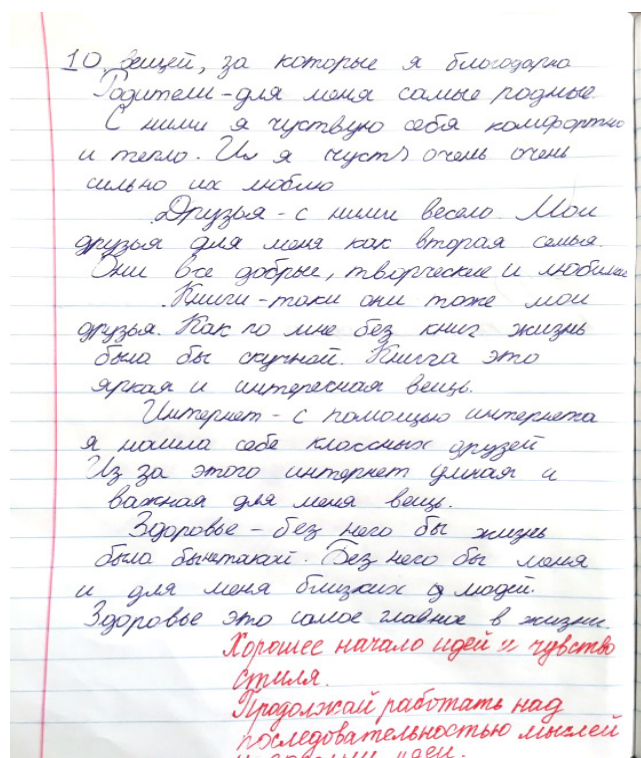 10 вещей, за которые я благодарна
Родители - для меня самые родные.
С ними я чуствую себя комфортно
и тепло. И я очень очень
сильно их люблю
Друзья - с ними весело. Мои
друзья для меня как вторая семья.
Они все добрые, творческие и любимые
Книги - таки они тоже мои
друзья. Как по мне без книг жизнь
была бы скучной. Книга это
яркая и интересная вещь.
Интернет - с помощью интернета
я нашла себе классных друзей
Из за этого интернет умная и
важная для меня вещь.
Здоровье - без него бы жизнь
была бы такой. Без него бы меня
и для меня близких людей.
Здоровье это самое главное в жизни.
Хорошее начало идей и чувство
стиля.
Продолжай работать над
последовательностью мыслей